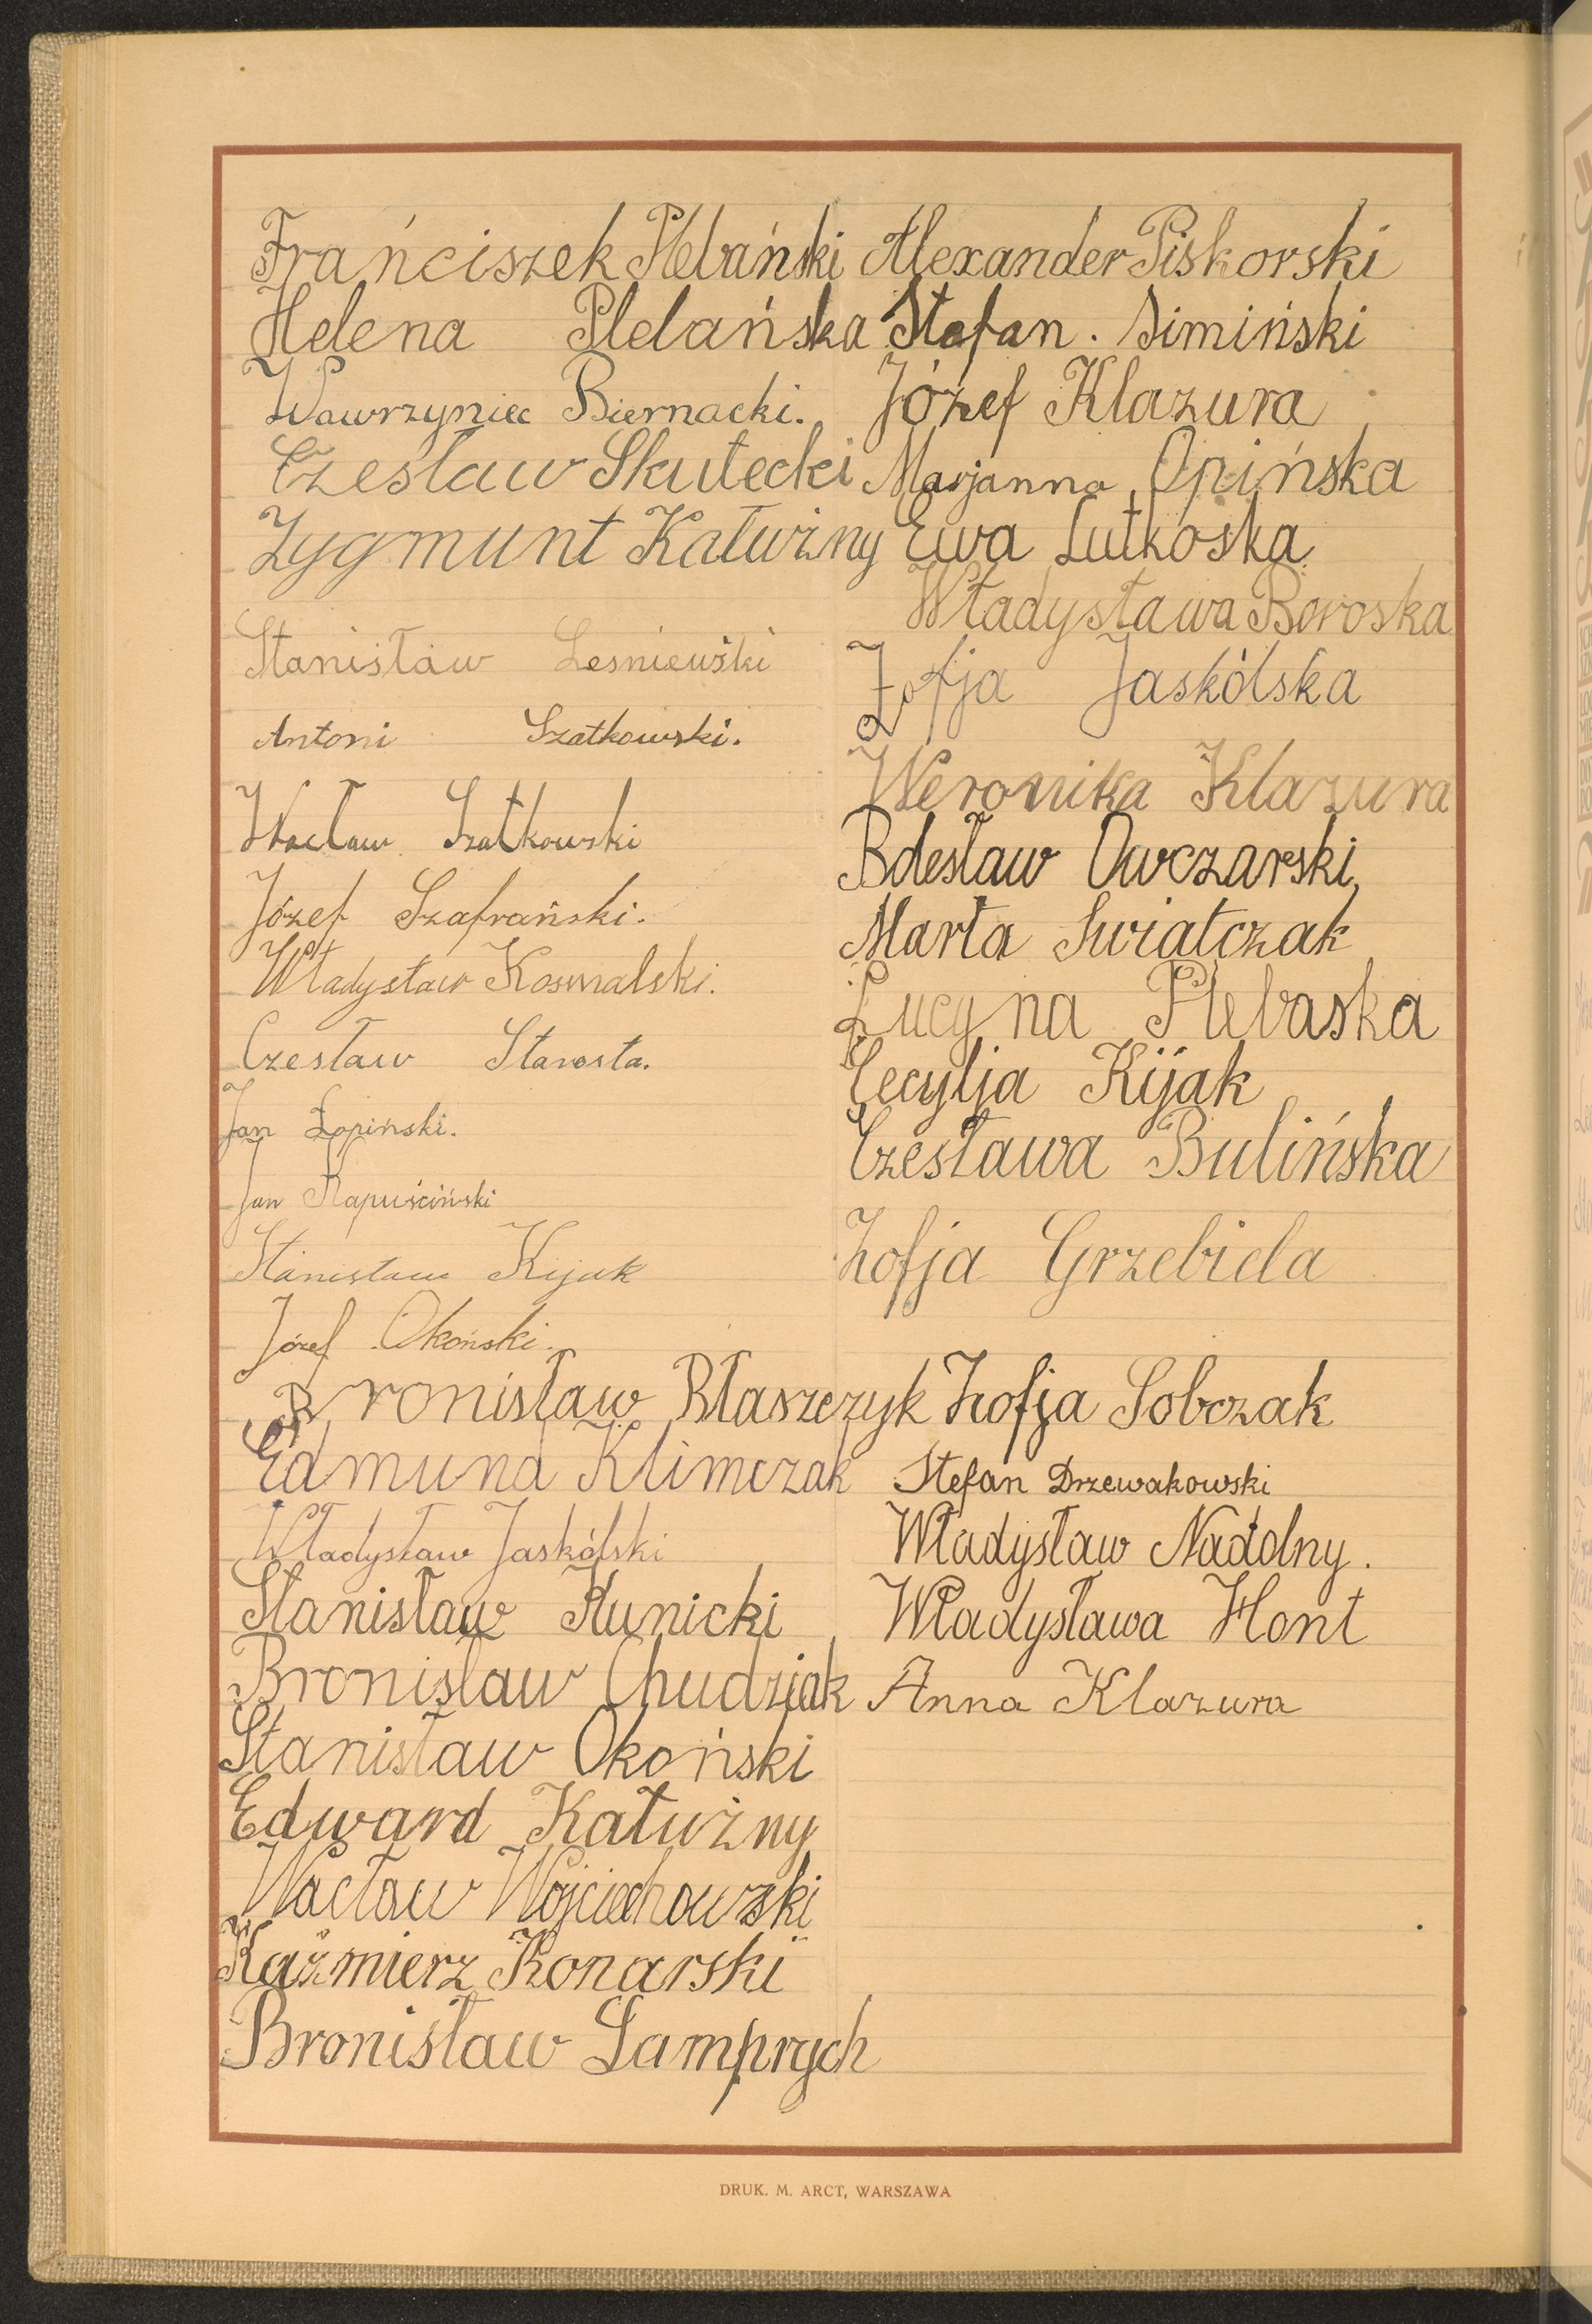 Frańciszek Plebański
Helena Plelańska
Wawrzyniec Biernacki.
Czesław Skutecki
Zygmunt Kałużny
Stanisław Leśniewski
Antoni Szatkowski.
Wacław Szatkowski
Józef Szafrański.
Władysław Kosmalski.
Czesław Starosta.
Jan Łopiński.
Jan Kapuściński
Stanisław Kijak
Józef Okoński.
Bronisław Błaszczyk
Edmund Klimczak
Władysław Jaskólski
Stanisław Kunicki
Bronisław Chudziak
Stanisław Okoński
Edward Kałużny
Wacław Wojciechowski
Kaźmierz Konarski
Bronisław Lamprych
Alexander Piskorski
Stefan. Simiński
Józef Klazura
Marjanna Opińska
Ewa Lutkoska
Władysława Boroska
Zofja Jaskólska
Weronika Klazura
Bolesław Owczarski
Marta Swiatczak
Lucyna Plebaska
Cecylja Kijak
Czesława Bulińska
Zofja Grzebiela
Zofja Sobczak
Stefan Drzewakowski
Władysław Nadolny.
Władysława Hont
Anna Klazura
DRUK. M. ARCT, WARSZAWA